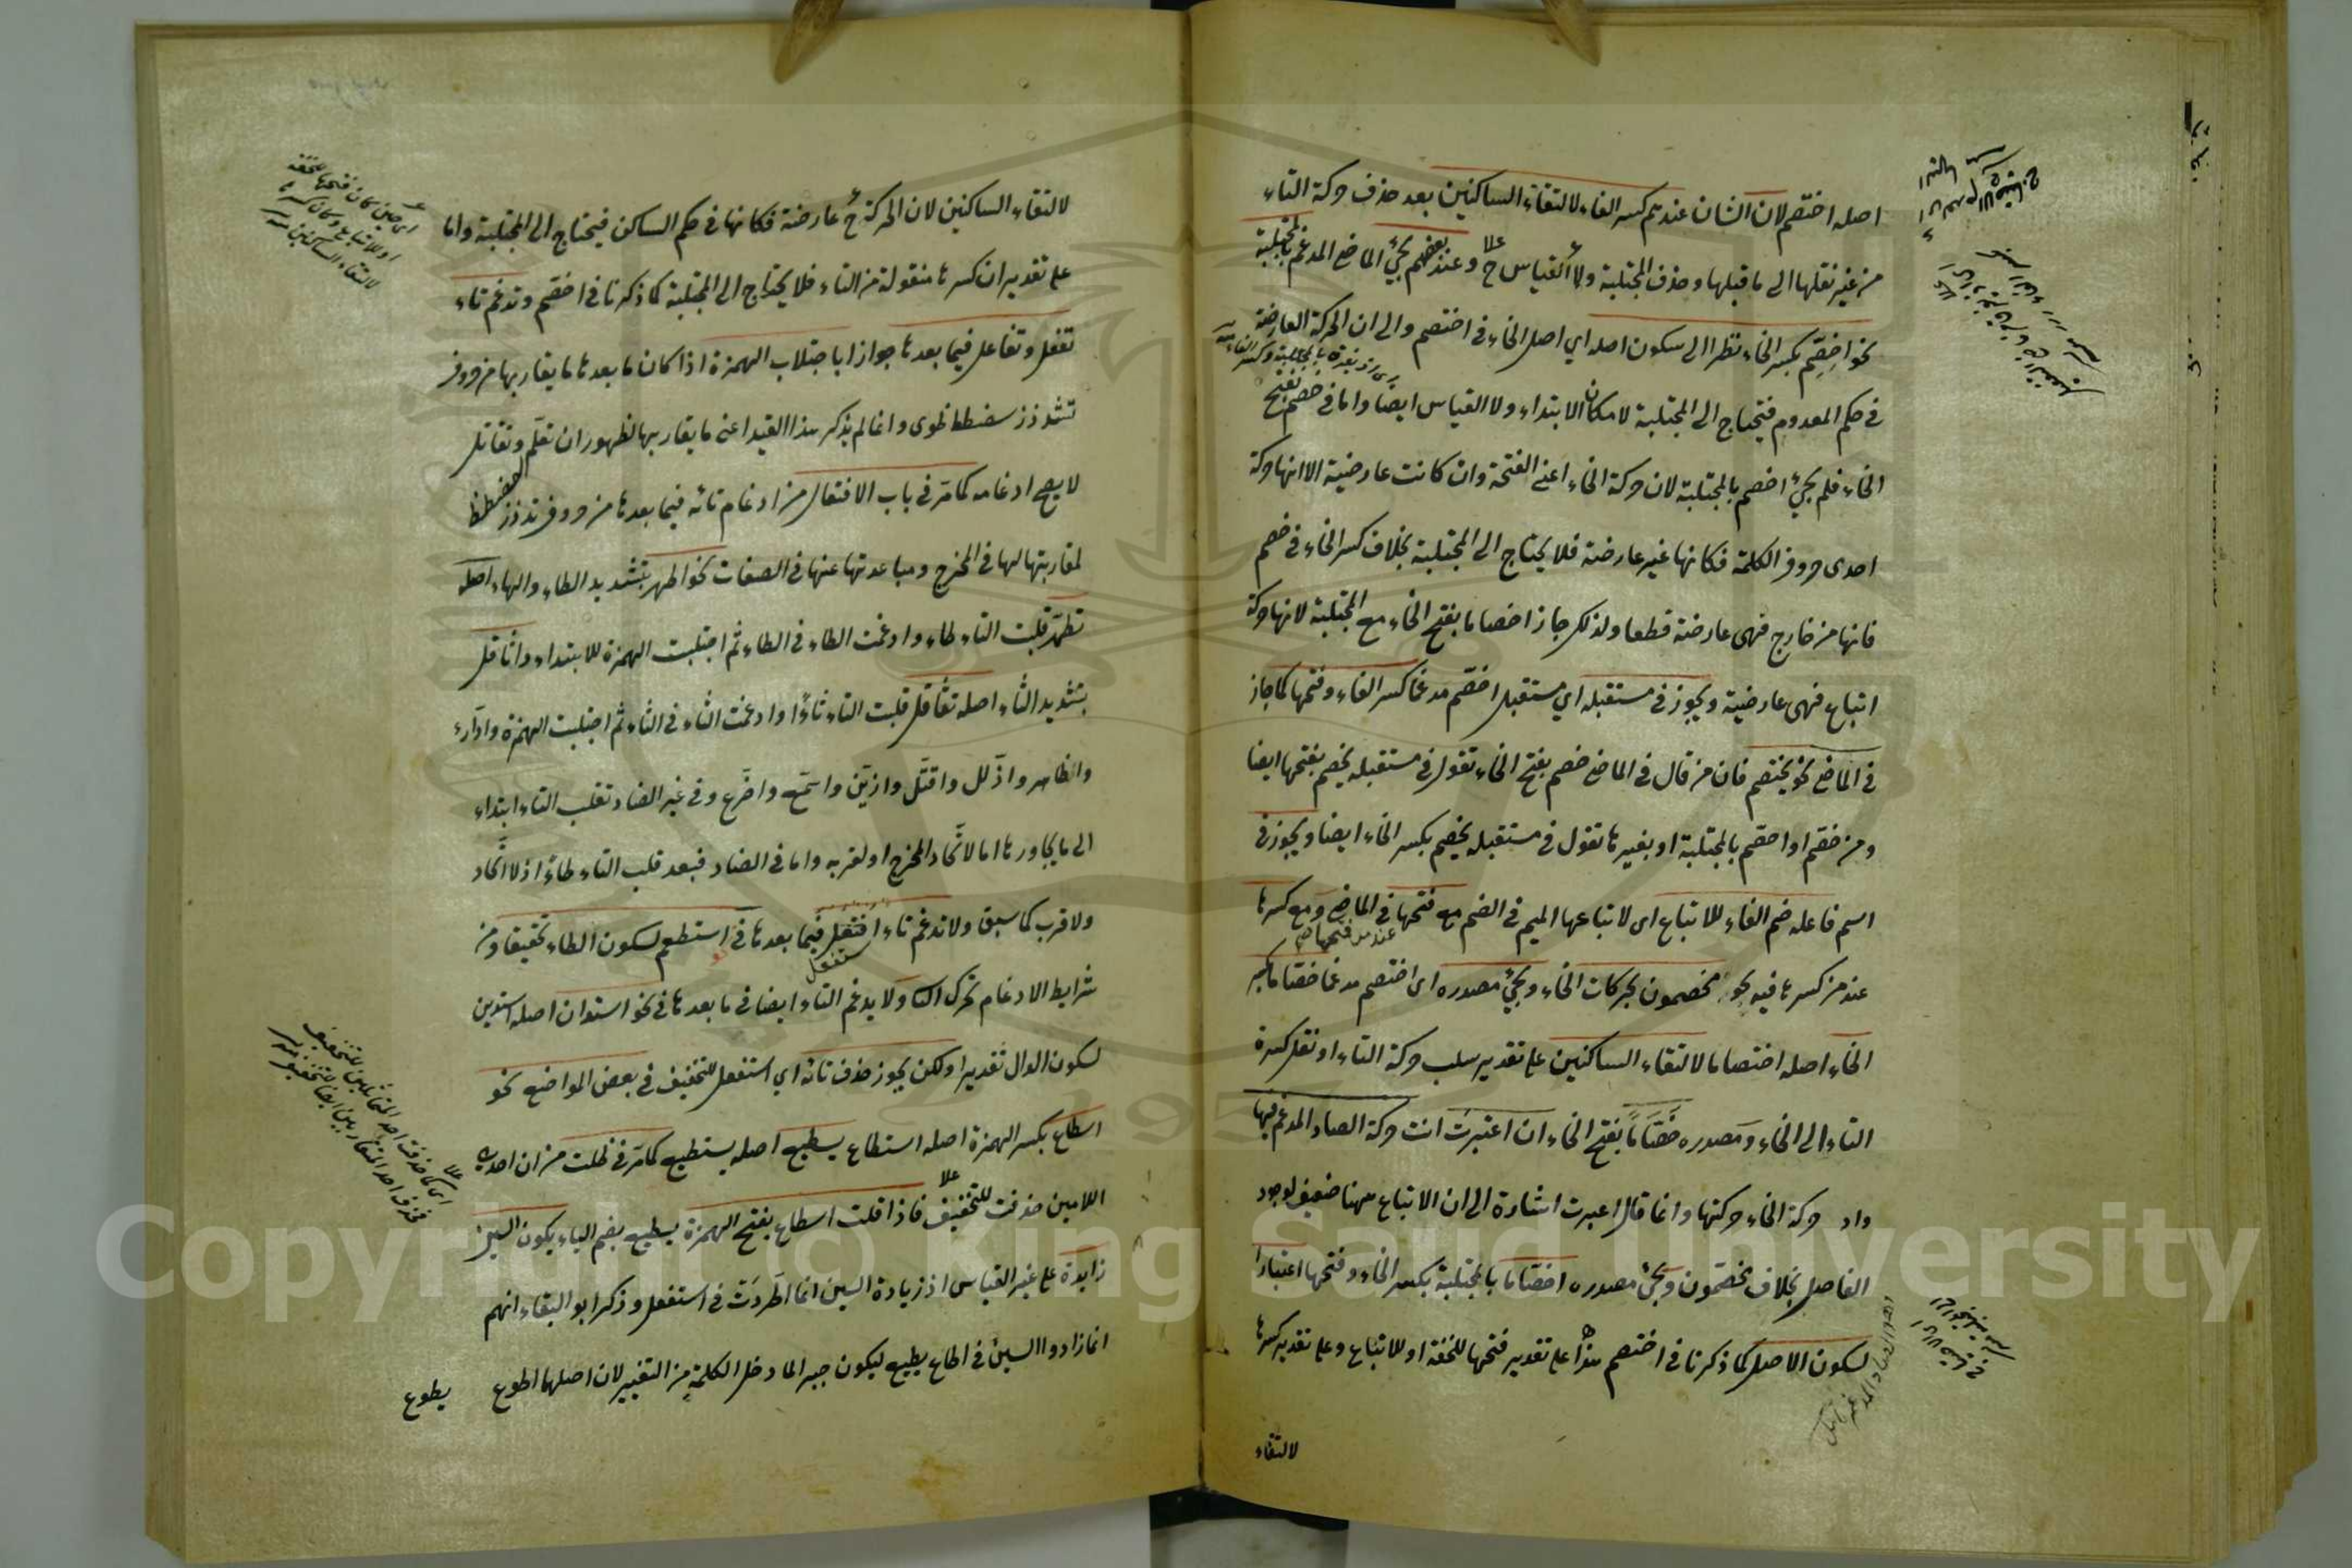 اصله اختصم لان الشان عندهم كسر الفاء لالتقاء الساكنين بعد حذف حركة التاء
من غير نقلها الى ما قبلها وحذف المجتلبة ولا القياس ح وعند بعضهم يجئ الماضي المدغم بالمجتلبة
نحو اخصّم بكسر الخاء نظرا الى سكون اصله اي اصل الخاء في اختصم والى ان الحركة العارضة
في حكم المعدوم فيحتاج الى المجتلبة لامكان الابتداء ولا القياس ايضا واما في خصم بفتح
الخاء فلم يجئ اخصم بالمجتلبة لان حركة الخاء اعني الفتحة وان كانت عارضية الا انها حركة
احدى حروف الكلمة فكانها غير عارضة فلا يحتاج الى المجتلبة بخلاف كسر الخاء في خصم
فانها من خارج فهى عارضة قطعا ولذلك جاز اخصاما بفتح الخاء مع المجتلبة لانها حركة
اتباع فهى عارضية ويجوز في مستقبله اي مستقبل اختصم مدغما كسر الفاء وفتحها كما جاز
في الماضي نحو يختصم فان من قال في الماضي خصم بفتح الخاء تقول في مستقبله يخصم بفتحها ايضا
ومن خصم او اخصم بالمجتلبة او بغيرها تقول في مستقبله يخصم بكسر الخاء ايضا ويجوز في
اسم فاعله ضم الفاء للاتباع اى لاتباعها الميم في الضم مع فتحها في الماضي ومع كسرها
عند من فتحها
عند من كسرها فيه نحو مخصمون بحركات الخاء ويجئ مصدره اى اختصم مدغما خصاما بكسر
الخاء اصله اختصاما لالتقاء الساكنين على تقدير سلب حركة التاء او نقل كسرة
التاء الى الخاء ومصدره خَصَّاماً بفتح الخاء ان اعتبرت انت حركة الصاد المدغم فيها
واد حركة الخاء حركتها وانما قال اعبرت اشارة الى ان الاتباع ههنا ضعيف لوجود
الفاصل بخلاف مخصمون ويجئ مصدره اخصاما بالمجتلبة بكسر الخاء وفتحها اعتبارا
لسكون الاصل كما ذكرنا في اختصم هذا على تقدير فتحها للخفة او للاتباع وعلى تقدير كسرها
لالتقاء
لالتقاء الساكنين لان الحركة ح عارضة فكانها في حكم الساكن فيحتاج الى المجتلبة واما
على تقدير ان كسرها منقولة من التاء فلا يحتاج الى المجتلبة كما ذكرنا في اخصم وتدغم تاء
تفعل وتفاعل فيما بعدها جوازا باجتلاب الهمزة اذا كان ما بعدها ما يقاربها من حروف
تثدذز سشصضطظوى وانما لم يذكر هذا القيد اعنى ما يقاربها لظهور ان تعلّم وتقاتل
لا يصح ادغامه كما مر في باب الافتعال من ادغام تائه فيما بعدها من حروف تثدذز سصضطظ
لمقاربتها لها في المخرج ومباعدتها عنها في الصفات نحو اطهر بتشديد الطاء والهاء اصله
تطهّر قلبت التاء طاء وادغمت الطاء في الطاء ثم اجتلبت الهمزة للابتداء واثاقل
بتشديد الثاء اصله تثاقل قلبت التاء ثاءً وادغمت الثاء في الثاء ثم اجتلبت الهمزة وادّارء
واظاهر واذّلل واقتّل وازيّن واسمّع واضّرع وفي غير الضاد تقلب التاء ابتداء
الى ما يجاورها اما لاتحاد المخرج او لقربه واما في الضاد فبعد قلب التاء طاءً اذ لا اتحاد
ولا قرب كما سبق ولا تدغم تاء استفعل فيما بعدها في استطعم لسكون الطاء تحقيقا ومن
شرايط الادغام تحرك الثانى ولا يدغم التاء ايضا في ما بعدها في نحو استدان اصله استدين
لسكون الدال تقديرا ولكن يجوز حذف تائه اي استفعل للتخفيف في بعض المواضع نحو
اسطاع بكسر الهمزة اصله استطاع يسطيع اصله يستطيع كما مر في ظلت من ان احدى
اللامين حذفت للتخفيف فاذا قلت اسطاع بفتح الهمزة يسطيع بضم الياء يكون السين
زايدة على غير القياس اذ زيادة السين انما اطّردت في استفعل وذكر ابو البقاء انهم
انما زادوا السين في اطاع يطيع ليكون جبر لما دخل الكلمة من التغيير لان اصلها اطوع
يطوع
اى حين كان فتحها للخفة
او للاتباع وكان كسرها
لالتقاء الساكنين منه
اى كما حذفت احد المتماثلين للتخفيف
حذف احد المتقاربين ايضا للتخفيف منه
Copyright © King Saud University